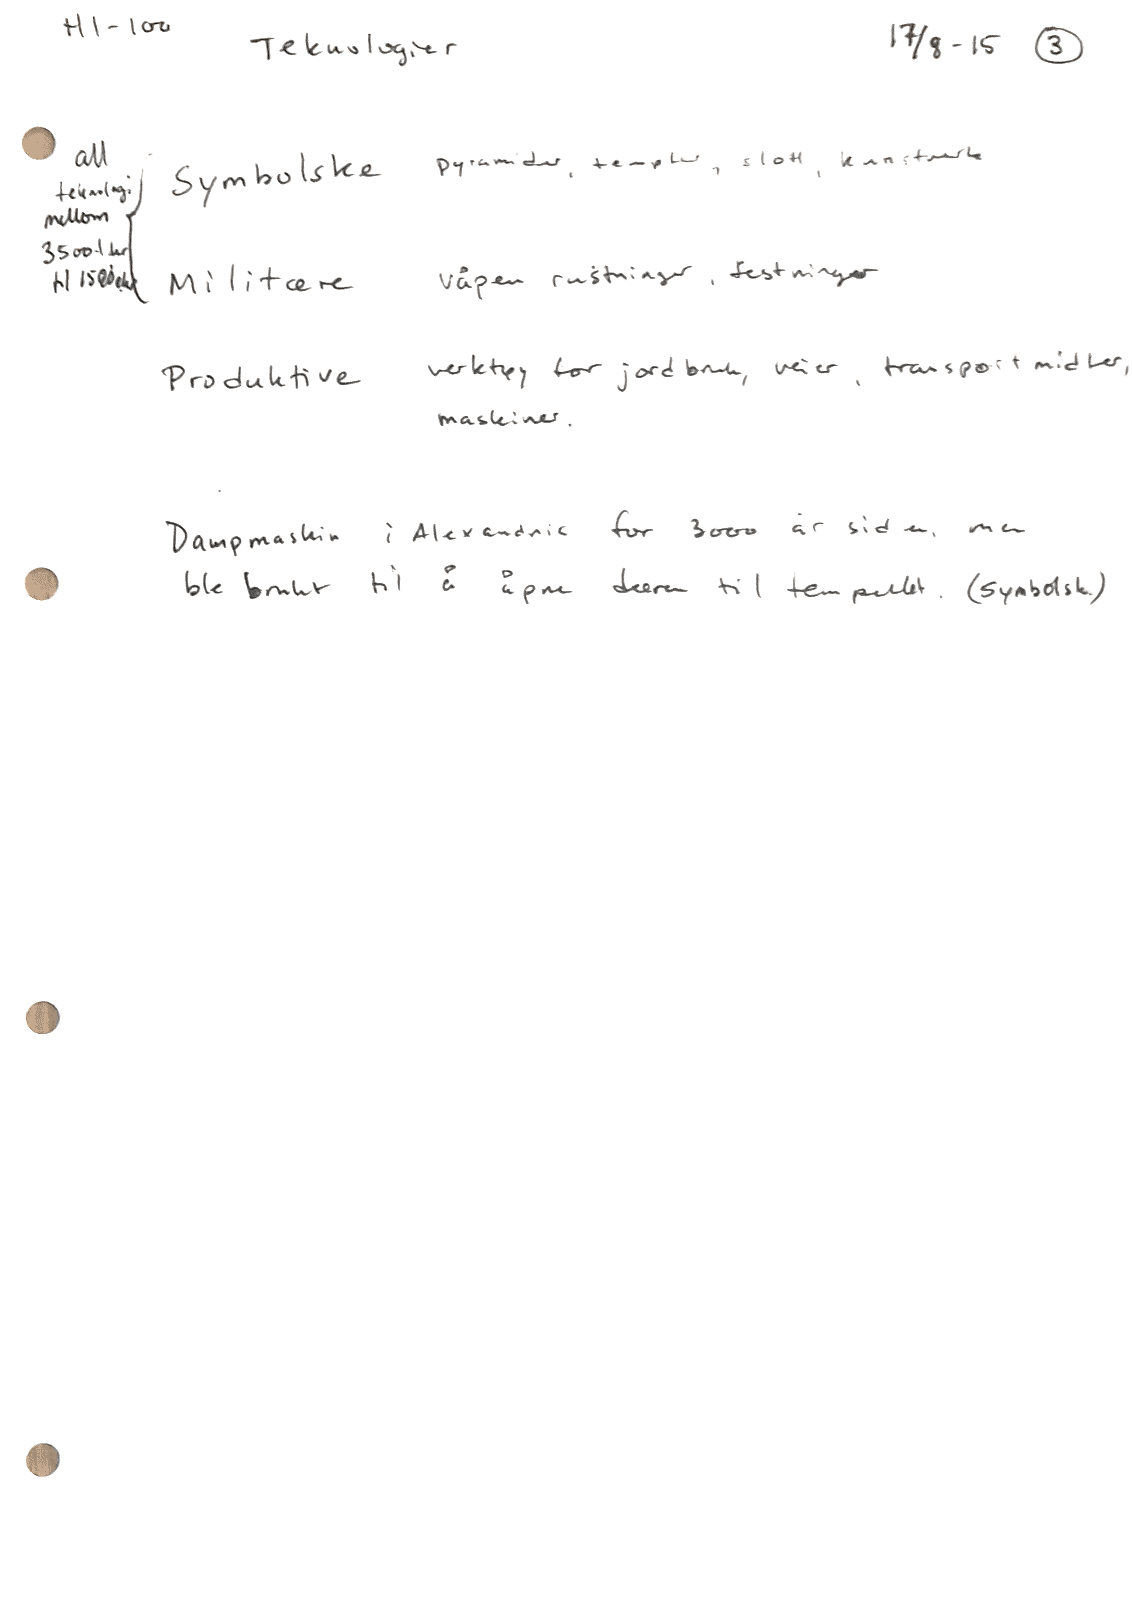 HI-100
Teknologier
17/8-15 3
all
teknologi
mellom
3500 f.kr
til 1500 e.kr
Symbolske pyramider, templer, slott, kunstverk
Militære våpen rustninger, festninger
Produktive verktøy for jordbruk, veier, transportmidler,
maskiner.
Dampmaskin i Alexandria for 3000 år siden, men
ble brukt til å åpne døren til tempellet. (Symbolsk.)